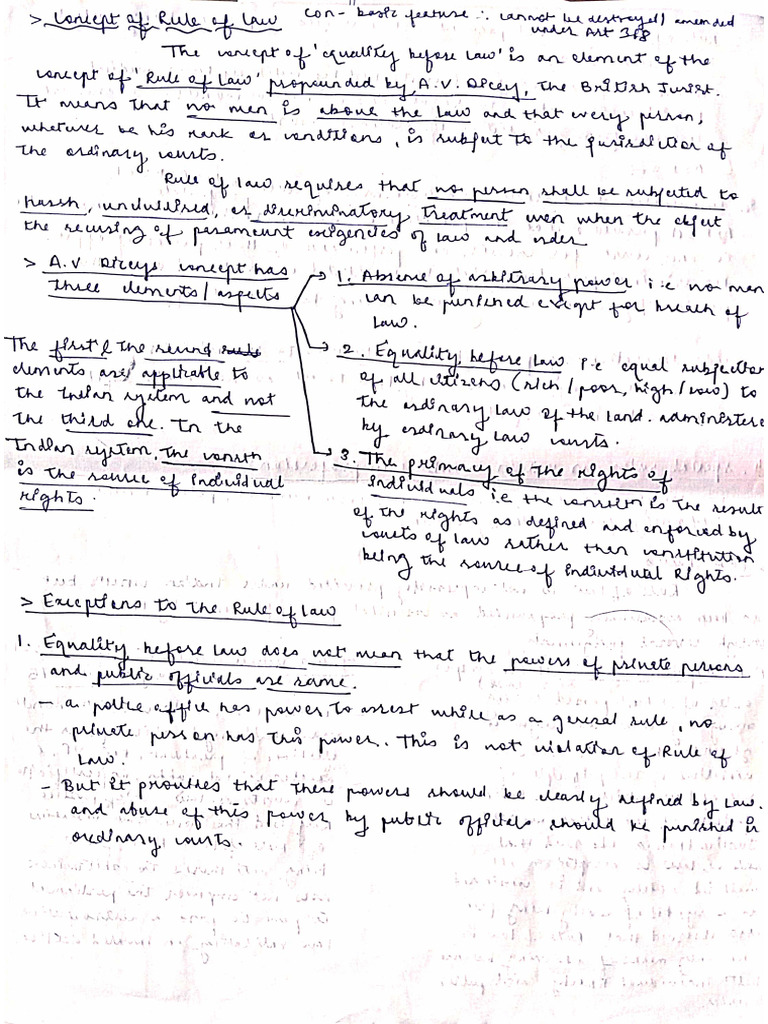 > Concept of Rule of Law
Con - basic feature ∴ cannot be destroyed / amended
under Art 368
The concept of 'equality before law' is an element of the
concept of 'Rule of Law' propounded by A.V. Dicey, the British Jurist.
It means that no men is above the law and that every person,
whatever be his rank or conditions, is subject to the jurisdiction of
the ordinary courts.
Rule of law requires that no person shall be subjected to
harsh, uncivilised, or discriminatory treatment even when the object
the securing of paramount exigencies of law and order
> A.V Diceys concept has
three elements / aspects
1. Absence of arbitrary power i.e no man
can be punished except for breach of
law.
2. Equality before law i.e equal subjection
of all citizens (rich / poor, high / low) to
the ordinary law of the land. administere
by ordinary law courts.
3. The primacy of the rights of
individuals i.e the constitn is the result
of the rights as defined and enforced by
courts of law rather then constitution
being the source of individual rights.
The first & the second
elements are applicable to
the Indian system and not
the third one. In the
Indian system, the constn
is the source of individual
rights.
> Exceptions to the Rule of Law
1. Equality before law does not mean that the powers of private persons
and public officials are same.
- a police office has power to arrest while as a general rule, no
private person has this power. This is not violation of Rule of
Law.
- But it provides that these powers should be clearly defined by law.
and abuse of this power by public officers should be punished in
ordinary courts.